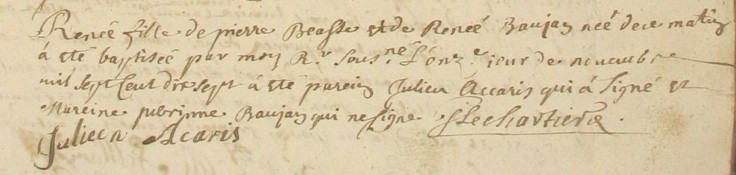 Reneé fille de pierre Beasse et de Reneé Baujan neé de ce matin
á eté baptiseé par moy Rr sousné l'onze iour de nouembre
mil sept Cent dix sept á eté parein Julien Accaris qui á signé et
Mareine Baujan qui ne signe G Lechartier
Julien Acaris